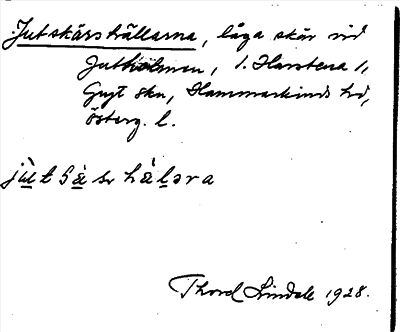 Jutskärshällarna, låga skär vid
Jutholmen, 1. Harstena 1,
Gryt skn, Hammarkinds hd,
Österg. l.
Thord Lindale 1928.